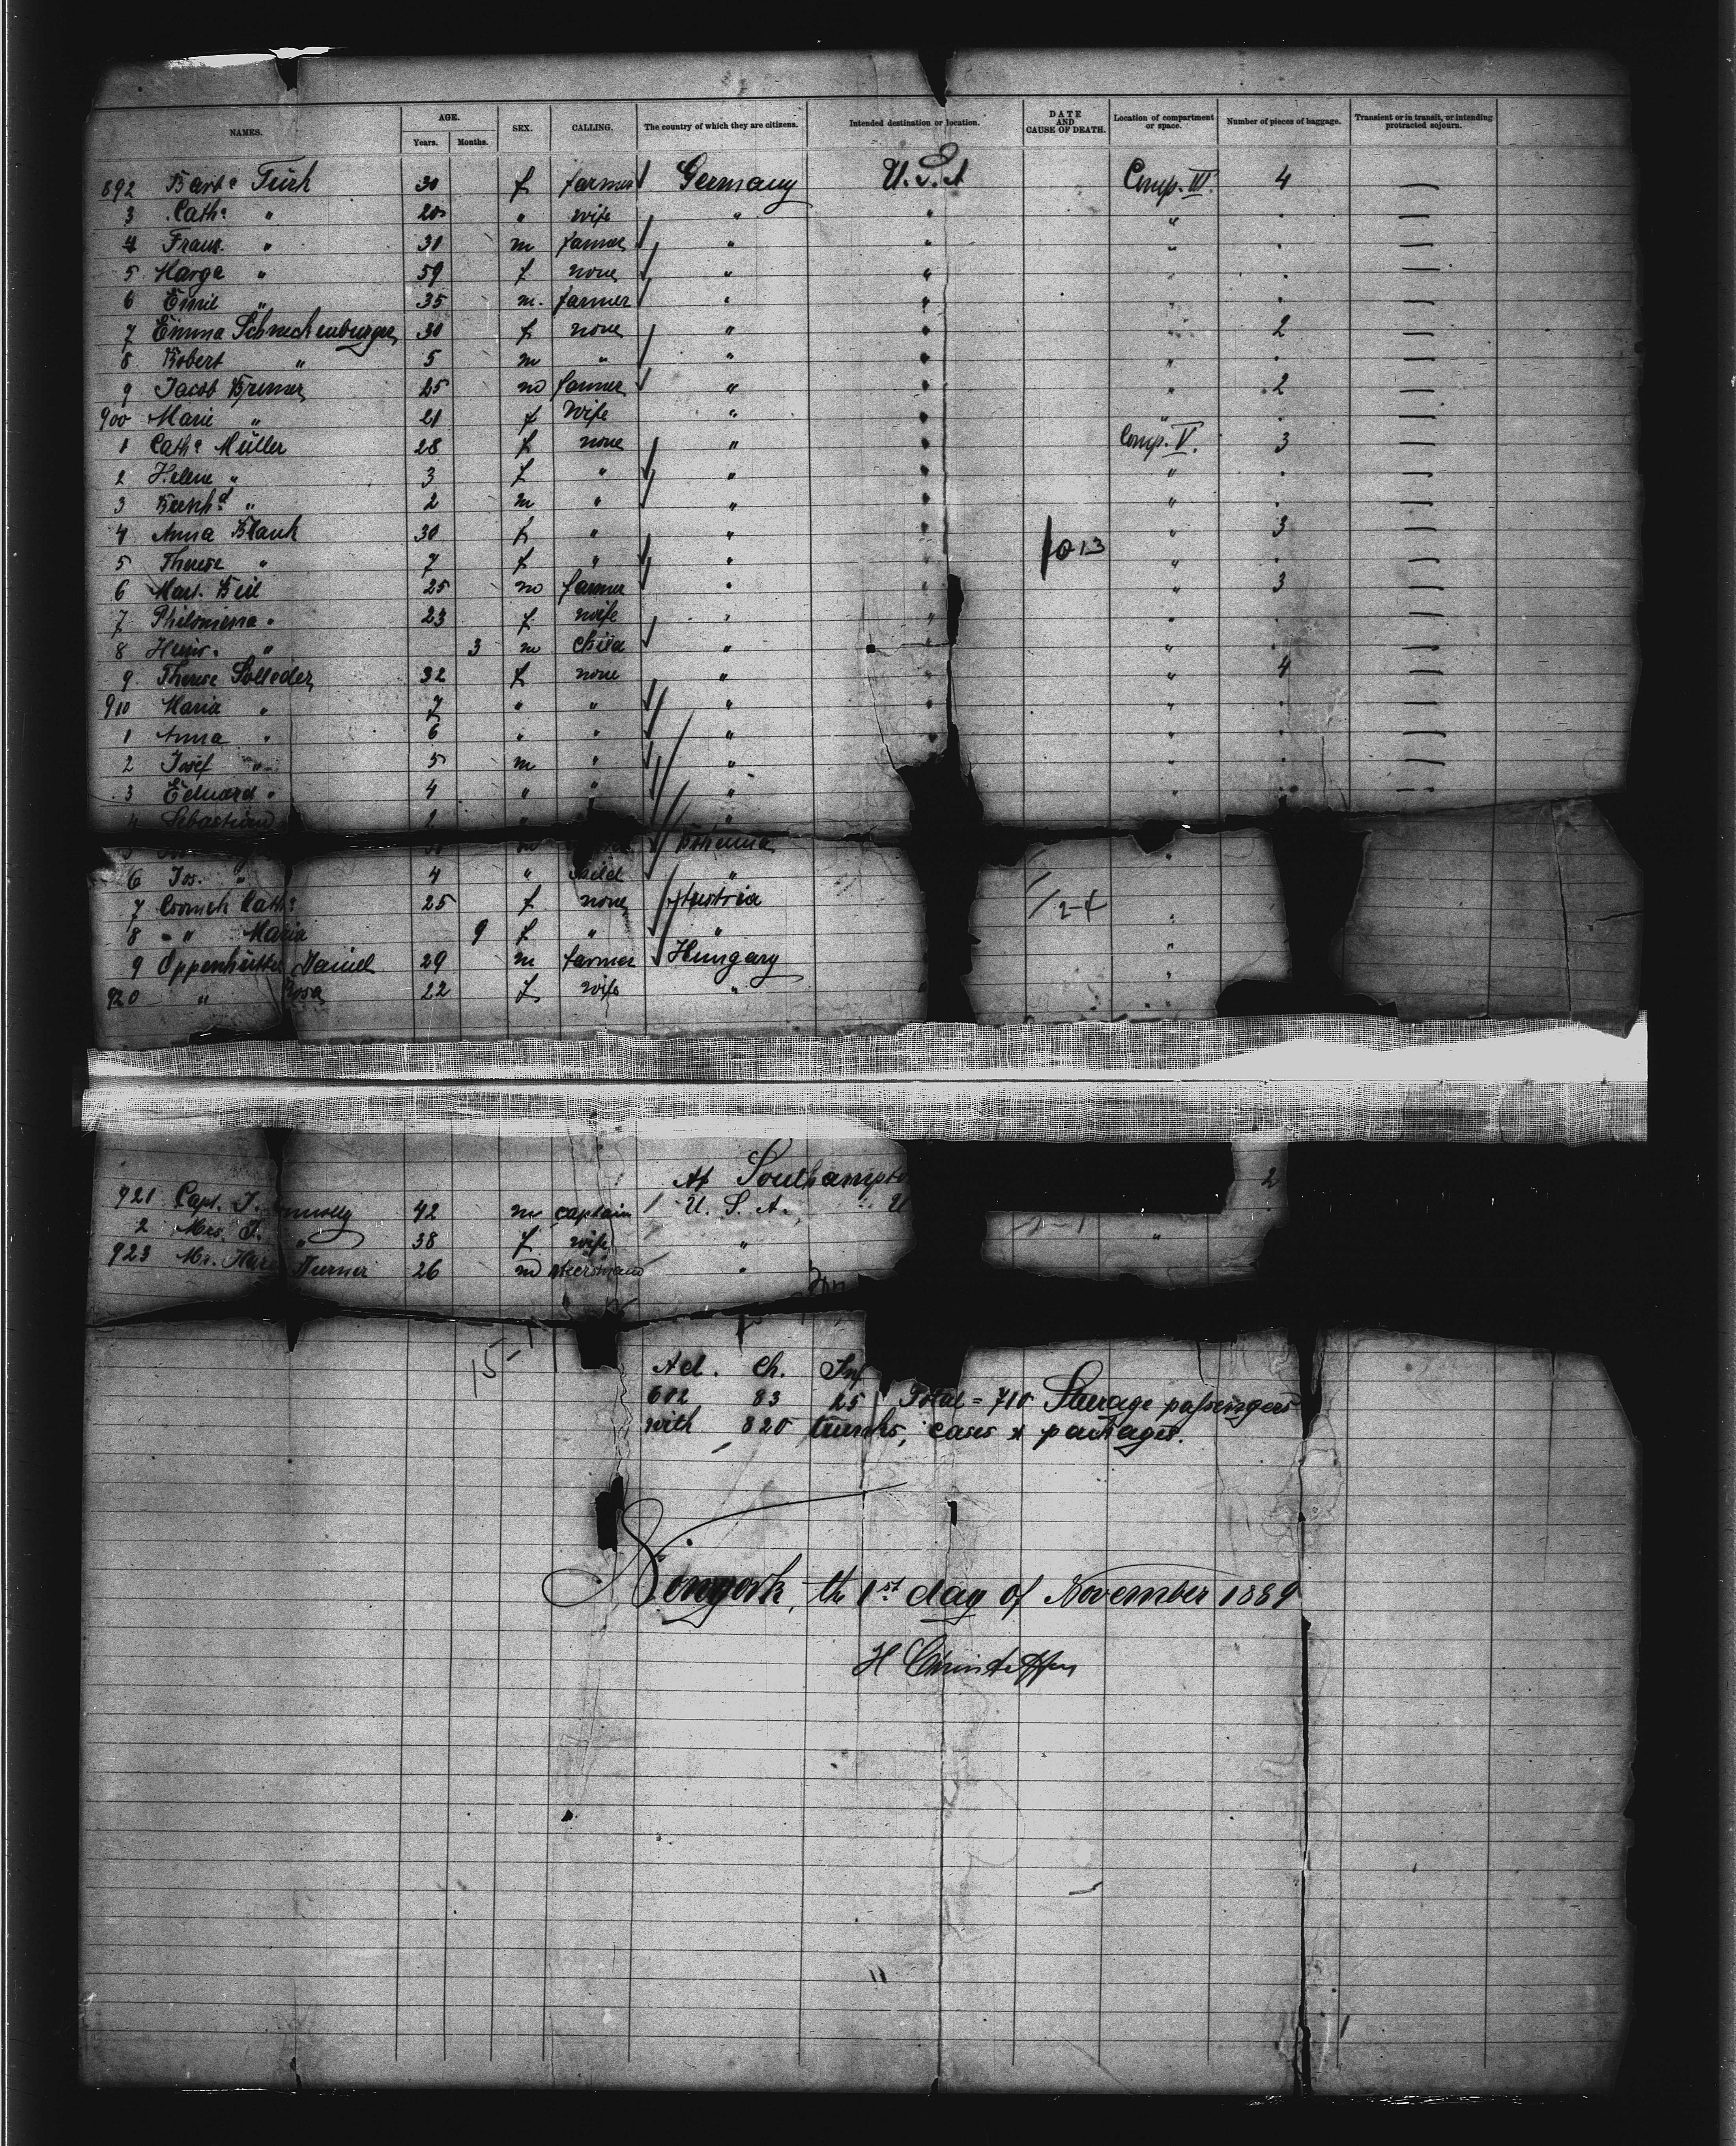 NAMES. AGE. Years. Months. SEX. CALLING. The country of which they are citizens. Intended destination or location. DATE AND CAUSE OF DEATH. Location of compartment or space. Number of pieces of baggage. Transient or in transit, or intending protracted sojourn.
892 Barb.a Türk 30 f farmer Germany U.S.A Comp. III. 4 —
3 Cath.a " 20 " wife " " " . —
4 Franz. " 31 m farmer " " " . —
5 Marga " 59 f none " " " . —
6 Emil " 35 m. farmer " " " . —
7 Emma Schneckenburger 30 f none " " " 2 —
8 Robert " 5 m " " " " . —
9 Jacob Bremer 25 m farmer " " " 2 —
900 Marie " 21 f wife " " " . —
1 Cath.a Müller 28 f none " " Comp. V. 3 —
2 Helene " 3 f " " " " . —
3 " 2 m " " " " . —
4 Anna Blank 30 f " " " " 3 —
5 Therese " 7 f " " " 1013 " . —
6 Mart. Beil 25 m farmer " " " 3 —
7 Philomena " 23 f wife " " " . —
8 Heinr. " 3 m child " " " . —
9 Therese Solleder 32 f none " " " 4 —
910 Maria " 7 " " " " " . —
1 Anna " 6 " " " " " . —
2 Josef " 5 m " " " . —
3 Eduard " 4 " " " " . —
4 Sebastian " " "
5 m Bohemia
6 Jos. " 4 " child "
7 Cath.a 25 f none Austria 2-4 "
8 " Maria 9 f " " "
9 Daniel 29 m farmer Hungary "
920 " Rosa 22 f wife "
At Southampto
921 Capt. J. 42 m captain U. S. A. U 2
2 Mrs. J. " 38 f wife " "
923 Mr. Turner 26 m "
15-1
Ad. Ch. Inf
602 83 25 Total = 710 Steerage passengers
with 820 trunks, cases & packages.
Newyork, the 1st day of November 1889
H